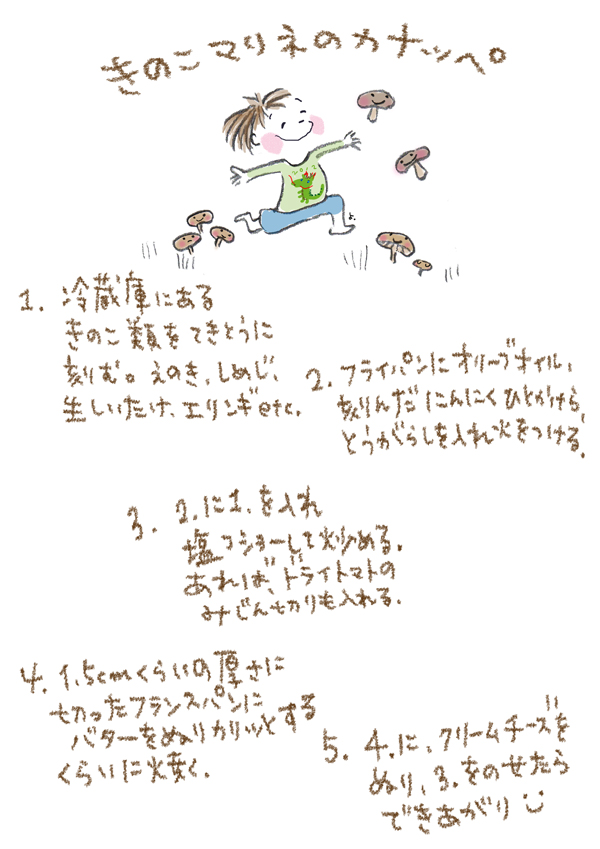 きのこマリネのカナッペ
1. 冷蔵庫にある
きのこ類をてきとうに
刻む。えのき、しめじ、
生しいたけ、エリンギetc.
2. フライパンにオリーブオイル、
刻んだにんにくひとかけら、
とうがらしを入れ火をつける。
3. 2.に1.を入れ
塩コショーして炒める。
あれば、ドライトマトの
みじん切りも入れる。
4. 1.5cmくらいの厚さに
切ったフランスパンに
バターをぬりカリッとする
くらいに焼く。
5. 4.に、クリームチーズを
ぬり、3.をのせたら
できあがり